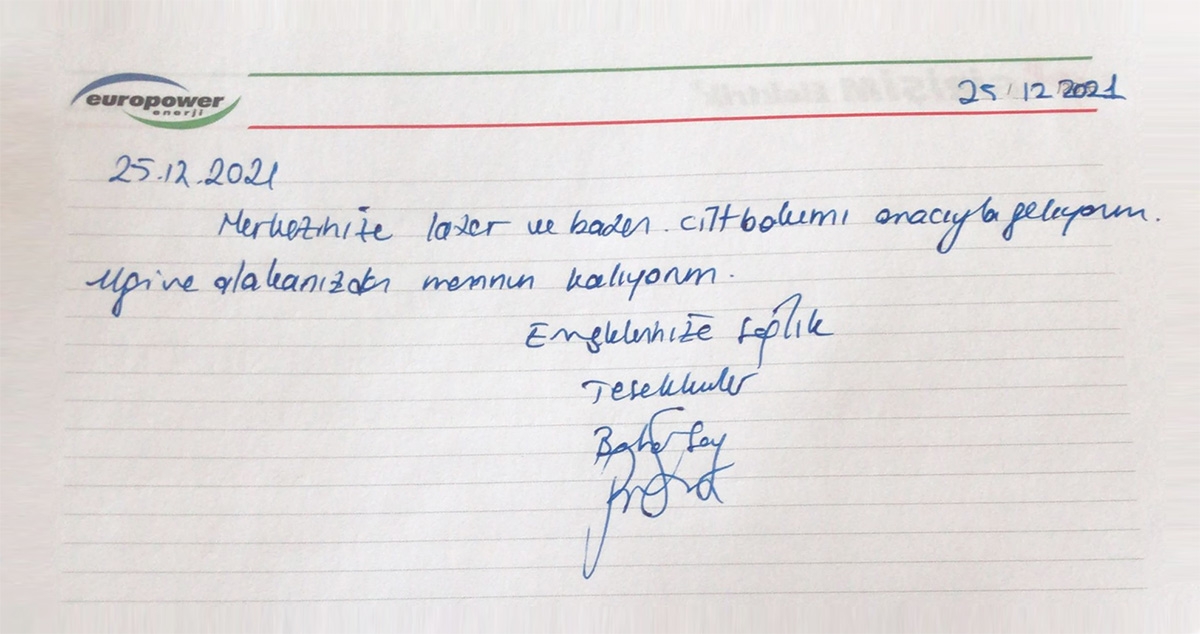 europower
enerji
25.12.2021
25.12.2021
Merkezinize lazer ve bazen ciltbakımı amacıyla geliyorum.
ilgi ve alakanızdan memnun kalıyorum.
Emeklerinize sağlık
Teşekkürler